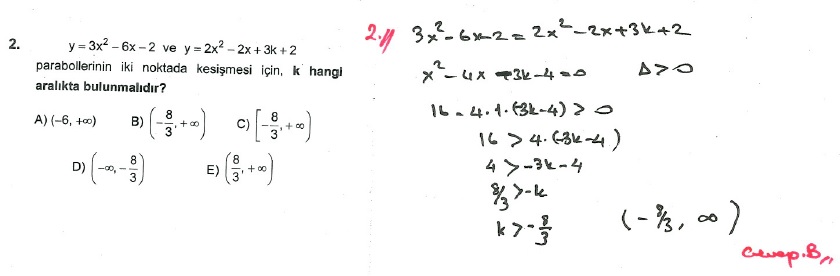 2. y = 3x² – 6x – 2 ve y = 2x² – 2x + 3k + 2
parabollerinin iki noktada kesişmesi için, k hangi
aralıkta bulunmalıdır?
A) (–6, +∞) B) (–8/3, +∞) C) [–8/3, +∞)
D) (–∞, –8/3) E) (8/3, +∞)
2.) 3x² – 6x – 2 = 2x² – 2x + 3k + 2
x² – 4x – 3k – 4 = 0 Δ > 0
16 – 4.1.(-3k–4) > 0
16 > 4.(-3k–4)
4 > -3k – 4
8/3 > -k
k > -8/3 (-8/3, ∞)
Cevap.B